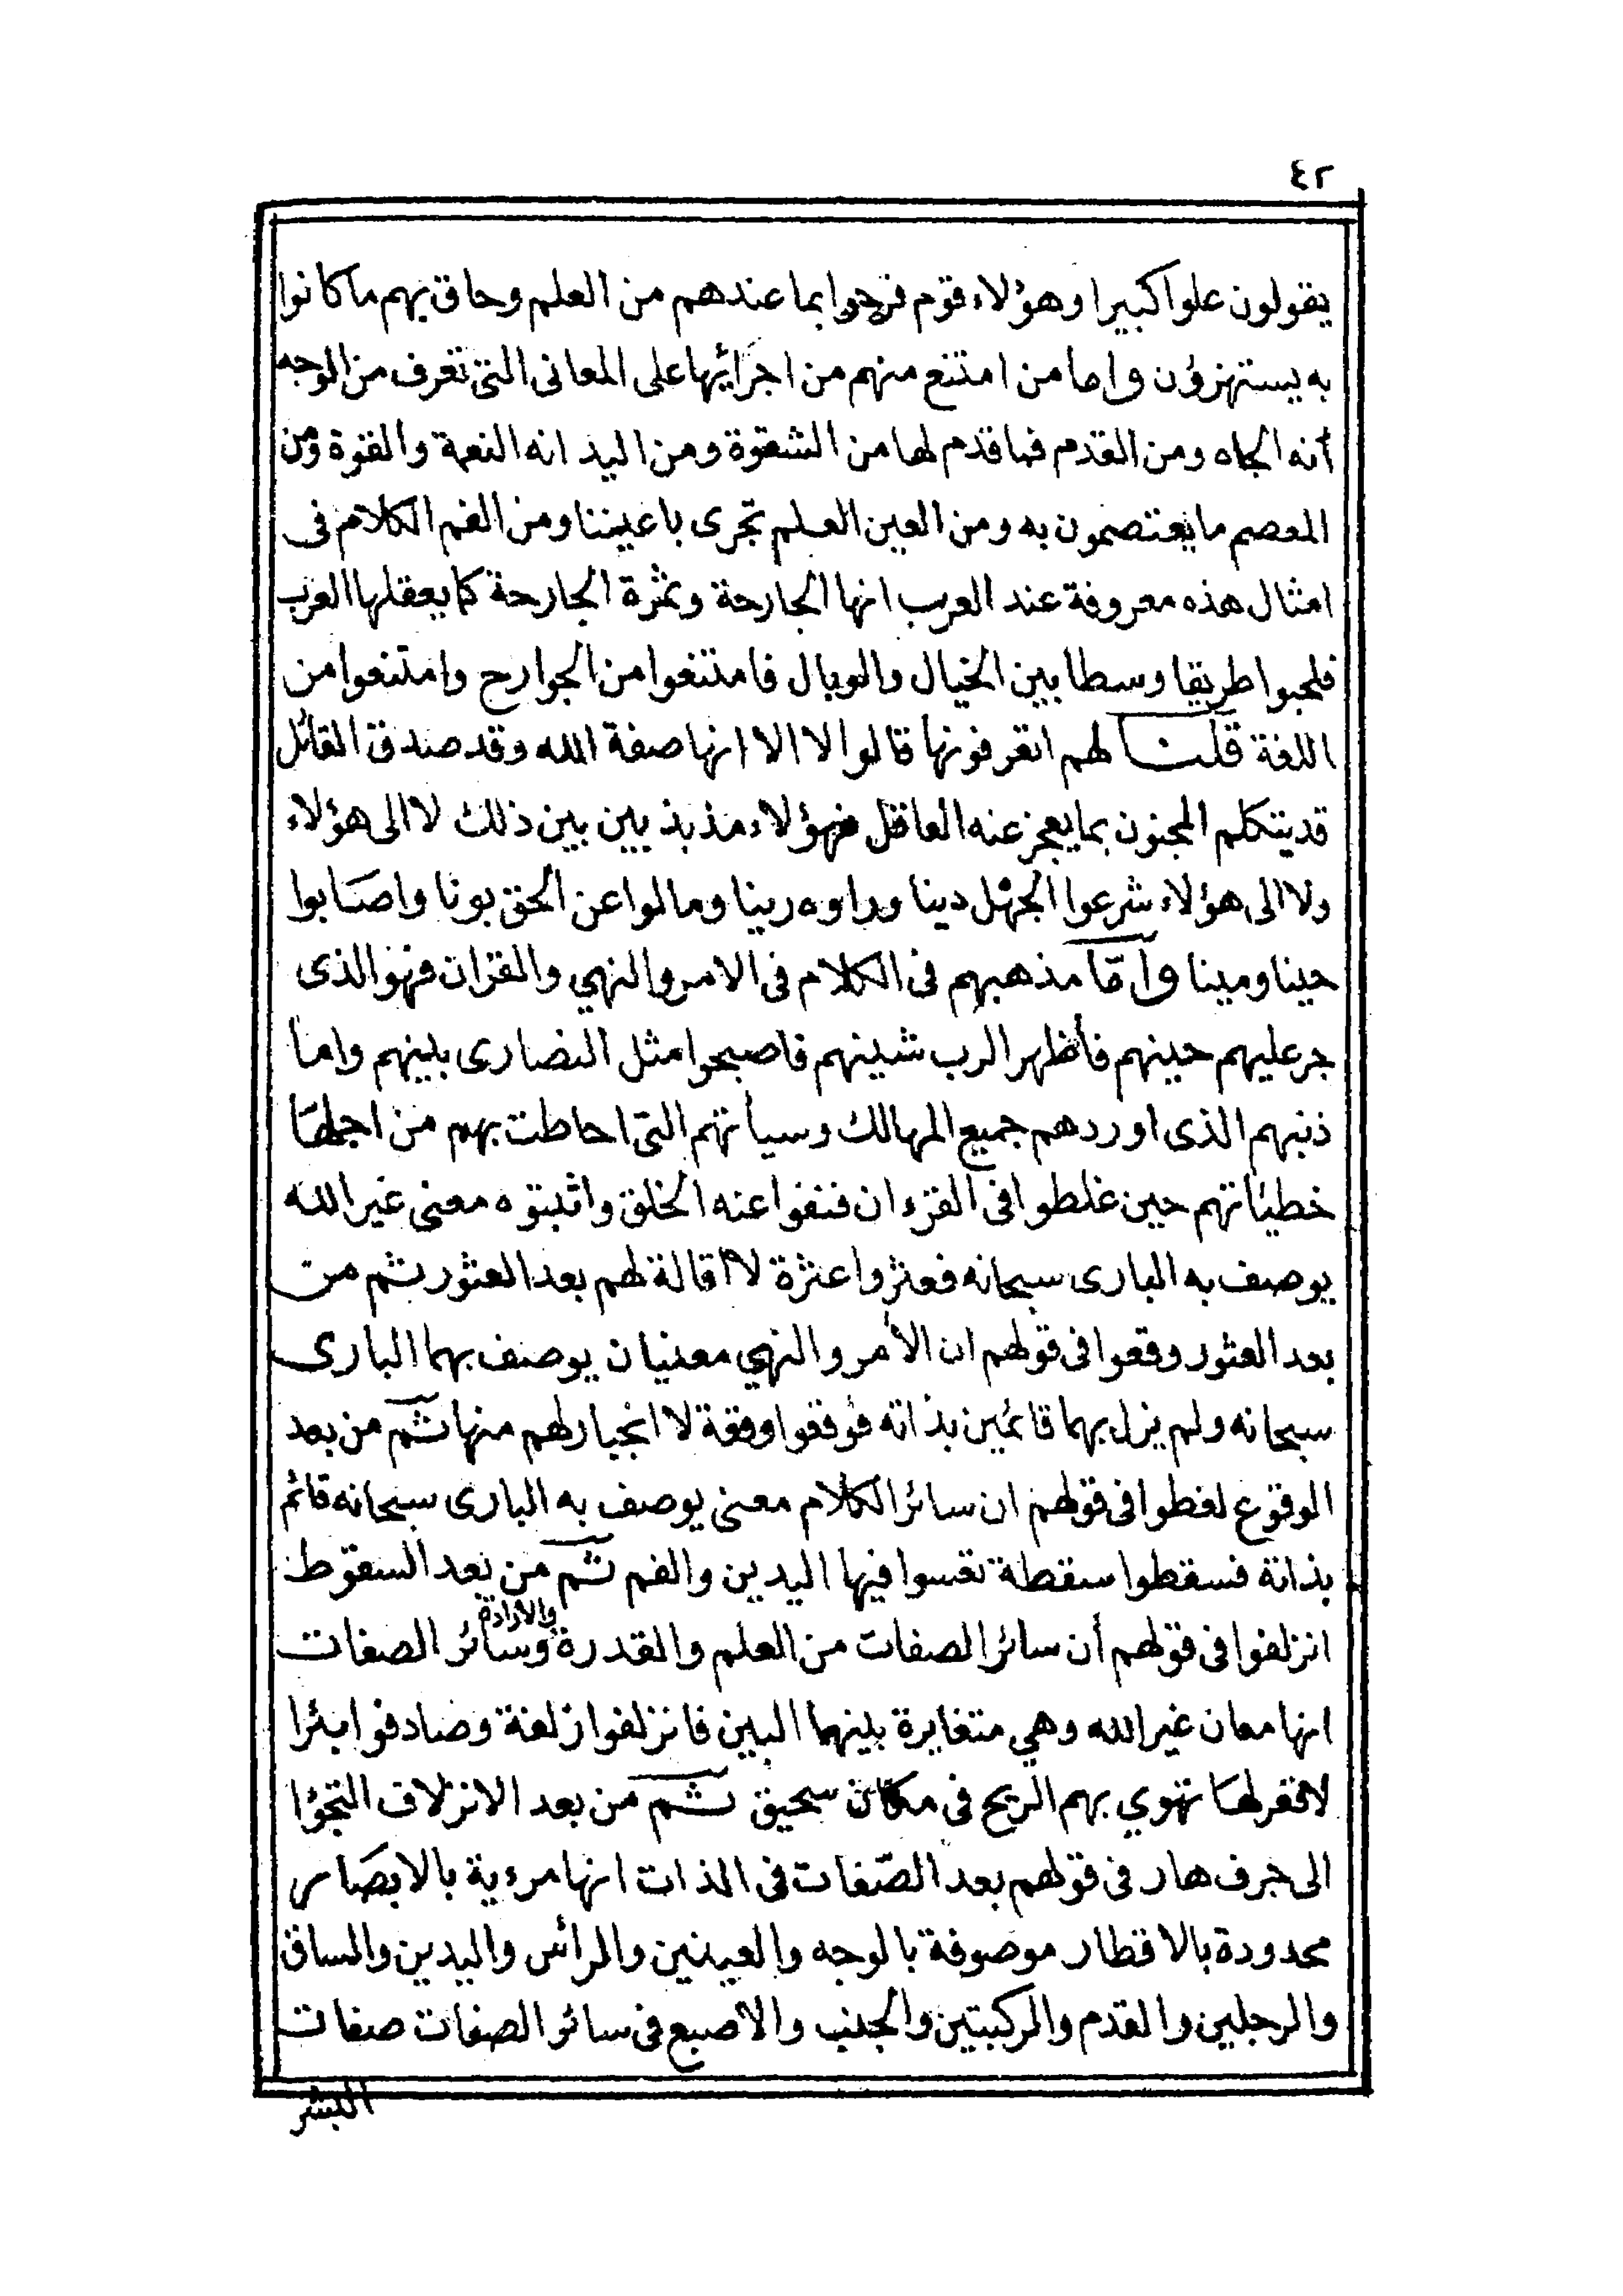 ٤٢
يقولون علوا كبيرا وهؤلاء قوم فرحوا بما عندهم من العلم وحاق بهم ما كانوا
به يستهزؤن واما من امتنع منهم من اجرائها على المعانى التى تعرف من الوجه
أنه الجاه ومن القدم فما قدم لها من الشقوة ومن اليد انه النعمة والقوة ومن
المعصم ما يعتصمون به ومن العين العلم تجرى باعيننا ومن الفم الكلام فى
امثال هذه معروفة عند العرب انها الجارحة وثمرة الجارحة كما يعقلها العرب
طريقا وسطا بين الخيال والوبال فامتنعوا من الجوارح وامتنعوا من
اللغة قلنا لهم اتعرفونها قالوا لا الا انها صفة الله وقد صدق القائل
قد يتكلم المجنون بما يعجز عنه العاقل فهؤلاء مذبذبين بين ذلك لا الى هؤلاء
ولا الى هؤلاء شرعوا الجهل دينا وراوه رينا ومالوا عن الحق بونا واصابوا
حينا ومينا وأمّا مذهبهم فى الكلام فى الامر والنهي والقران فهو الذى
جر عليهم حينهم فأظهر الرب شينهم فاصبحوا مثل النصارى بينهم واما
ذنبهم الذى اوردهم جميع المهالك وسيأتهم التى احاطت بهم من اجلها
خطيئاتهم حين غلطوا فى القرءان فنفوا عنه الخلق واثبتوه معنى غير الله
يوصف به البارى سبحانه فعثروا عثرة لا اقالة لهم بعد العثور ثم من
بعد العثور وقعوا فى قولهم ان الأمر والنهي معنيان يوصف بهما البارى
سبحانه ولم يزل بهما قائمين بذاته فوقعوا وقعة لا انجبار لهم منها ثم من بعد
الوقوع لغطوا فى قولهم ان سائر الكلام معنى يوصف به البارى سبحانه قائم
بذاتة فسقطوا سقطة تعسوا فيها اليدين والفم ثم من بعد السقوط
انزلفوا فى قولهم أن سائر الصفات من العلم والقدرة والارادة وسائر الصفات
انها معان غير الله وهي متغايرة بينهما البين فانزلفوا زلغة وصادفوا بئرا
لا قعر لها تهوي بهم الريح فى مكان سحيق ثم من بعد الانزلاف التجؤا
الى جرف هار فى قولهم بعد الصّفات فى الذات انها مرءية بالابصار
محدودة بالاقطار موصوفة بالوجه والعينين والرأس واليدين والساق
والرجلين والقدم والركبتين والجنب والاصبع فى سائر الصفات صفات
البشر